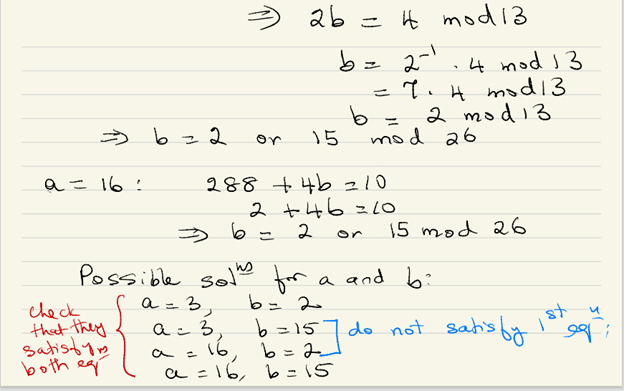 ⇒ 2b = 4 mod 13
b = 2⁻¹ · 4 mod 13
= 7 · 4 mod 13
b = 2 mod 13
⇒ b = 2 or 15 mod 26
a = 16 : 288 + 4b = 10
2 + 4b = 10
⇒ b = 2 or 15 mod 26
Possible solⁿˢ for a and b:
check that they satisfy both eqⁿˢ
a = 3, b = 2
a = 3, b = 15
a = 16, b = 2
do not satisfy 1ˢᵗ eqⁿ;
a = 16, b = 15